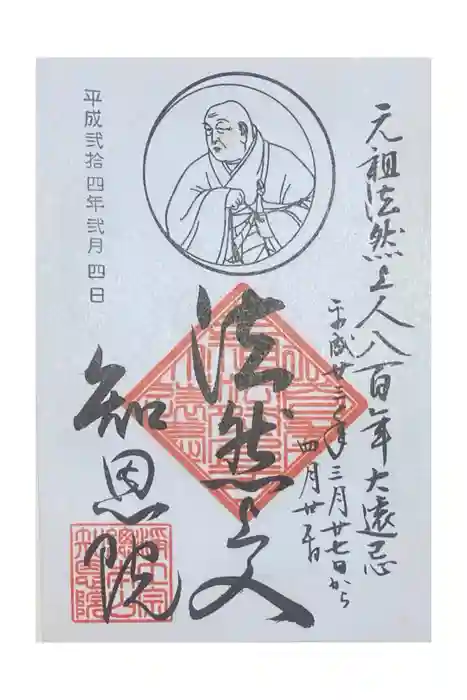 元祖法然上人八百年大遠忌
平成廿三年三月廿七日から
四月廿五日
法然上人
知恩院
浄土宗
總本山
知恩院
平成弐拾四年弐月四日